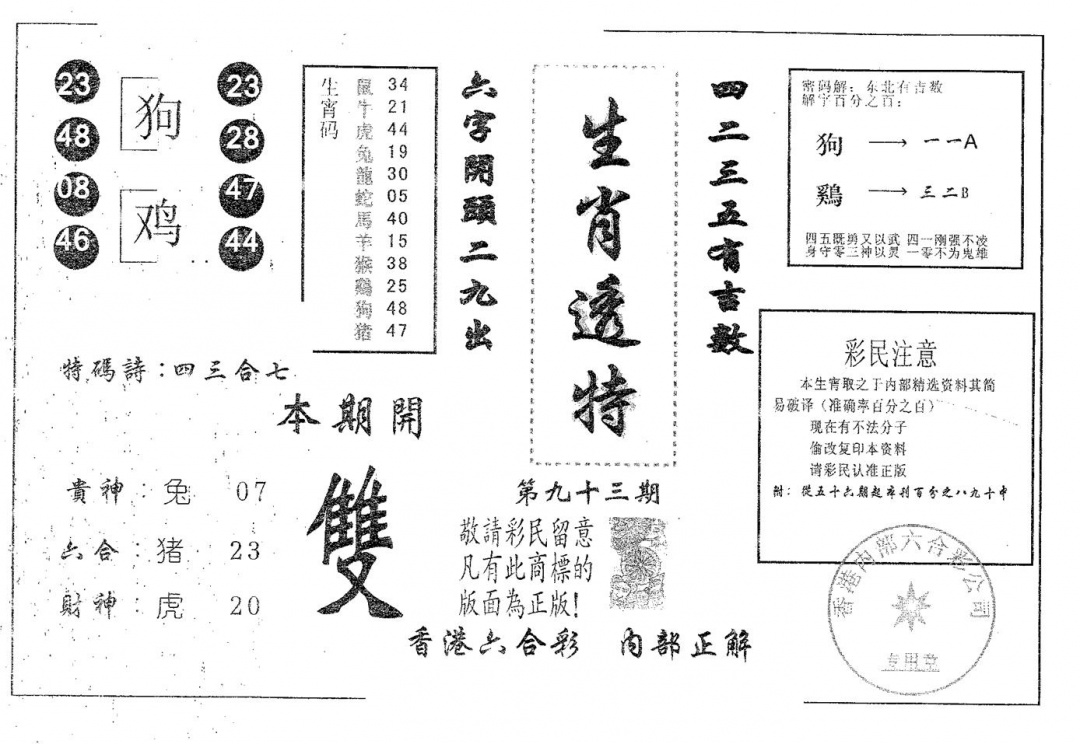 23
48
08
46
狗
鸡
23
28
47
44
生宵码
鼠 34
牛 21
虎 44
兔 19
龍 30
蛇 05
馬 40
羊 15
猴 38
鷄 25
狗 48
猪 47
六字開頭二九出
生肖透特
四二三五有吉數
密码解：东北有吉数
解字百分之百：
狗 → 一一A
鷄 → 三二B
四五既勇又以武 四一刚强不凌
身守零三神以灵 一零不为鬼雄
特碼詩：四三合七
本期開
雙
貴神：兔 07
六合：猪 23
財神：虎 20
第九十三期
敬請彩民留意
凡有此商標的
版面為正版！
香港六合彩 内部正解
彩民注意
本生宵取之于内部精选资料其简
易破译（准确率百分之百）
现在有不法分子
偷改复印本资料
请彩民认准正版
附：從五十六期起本刊百分之八九十中
香港内部六合彩公司
专用章